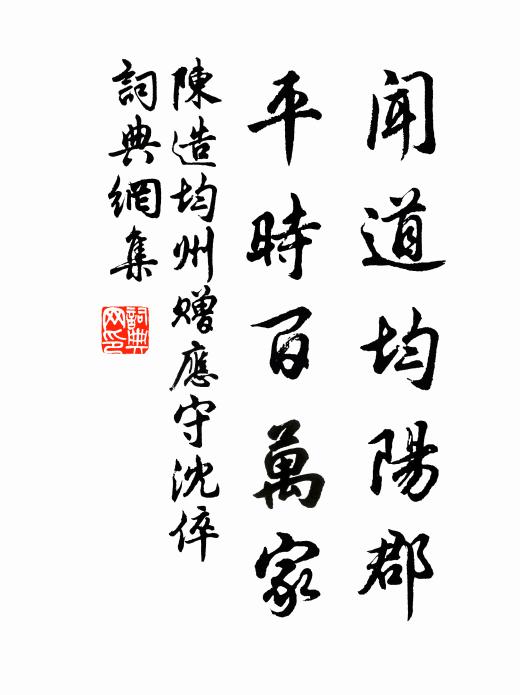 聞道均陽郡
平時百萬家
陳造均州贈應守沈倅
詞典網集
詞典
网印